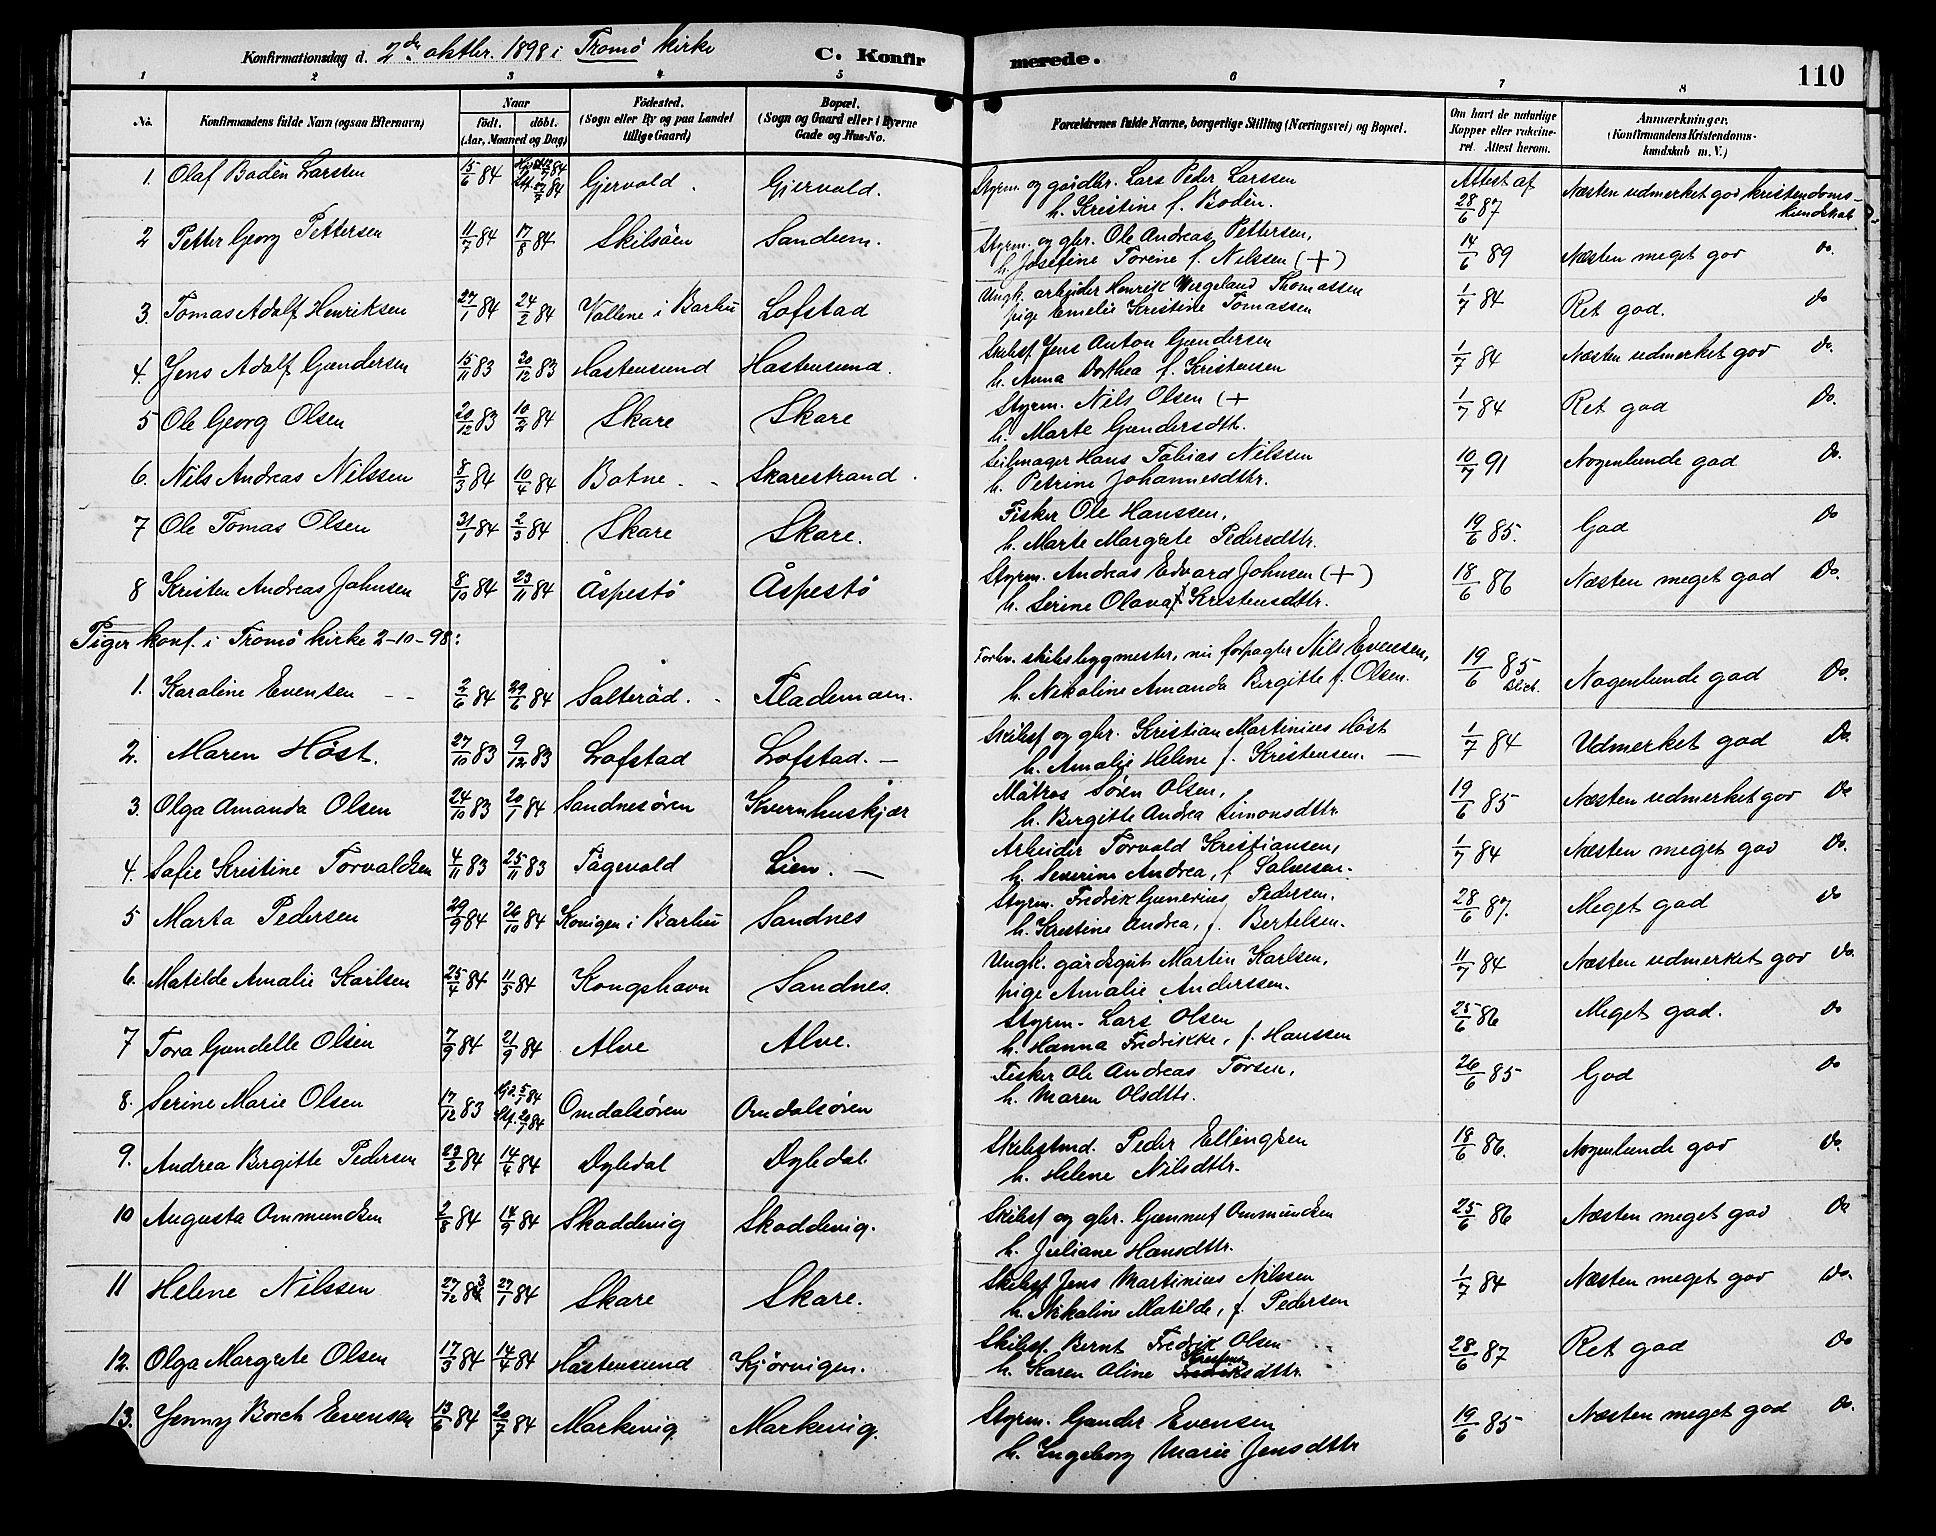 Konfirmationsdag d. 2den oktbr. 1898 i Tromö kirke C. Konfirmerede. 110
1 2 3 4 5 6 7 8
No. Konfirmandens fulde Navn (ogsaa Efternavn) Naar födt. döbt. (Aar, Maaned og Dag) Födested. (Sogn eller By og paa Landet tillige Gaard) Bopæl. (Sogn og Gaard eller i Byerne Gade og Hus-No. Forældrenes fulde Navne, borgerlige Stilling (Næringsvei) og Bopæl. Om havt de naturlige Kopper eller vakcineret. Attest herom. Anmærkninger. (Konfirmandens Kristendomskundskab m. V.)
1. Olaf Bodén Larssen 15/6 84 Gjervold. Gjervold. Styrm. og gårdbr. Lars Peder Larssen Attest af 28/6 87 Næsten udmerket god kristendoms-
h. Kristine f. Bodén. kundskab
2 Petter Georg Pettersen 11/7 84 17/8 84 Skilsöen Sandum. Styrm. og gbr. Ole Andreas Pettersen, 14/6 89 Næsten meget god Do.
h. Josefine Torene f. Nilssen (+)
3. Tomas Adolf Henriksen 27/1 84 24/2 84 Vollene i Barbu Lofstad Ungk. arbeider Henrik Wergeland Thomassen 1/7 84 Ret god. Do
pige Emelie Kristine Tomassen
4. Jens Adolf Gundersen 15/11 83 30/12 83 Hastensund Hastensund. Skibsf. Jens Anton Gundersen 1/7 84 Næsten udmerket god Do.
h. Anna Dorthea f. Kristensen
5 Ole Georg Olsen 20/12 83 10/2 84 Skare Skare Styrm. Nils Olsen (+ 1/7 84 Ret god Do.
h. Marte Gundersdtr.
6. Nils Andreas Nilssen 8/3 84 10/4 84 Botne. Skarestrand. Seilmager Hans Tobias Nilssen 10/7 91 Nogenlunde god Do.
h. Petrine Johannesdtr.
7 Ole Tomas Olsen 31/1 84 2/3 84 Skare Skare. Fisker Ole Hanssen, 19/6 85. God Do
h. Marte Margrete Pedersdtr.
8 Kristen Andreas Johnsen 8/10 84 23/11 84 Åspestö Åspestö Styrm. Andreas Edvard Johnsen (+) 18/6 86 Næsten meget god Do.
h. Serine Olava Kristensdtr.
Piger konf. i Tromö kirke 2-10-98:
1. Karoline Evensen 2/6 84 29/6 84 Salteröd. Flademoen. Forhv. skibsbygmester, nu forpagter Nils Evensen, 19/6 85 Nogenlunde god Do.
h. Nikoline Amanda Birgitte f. Olsen.
2. Maren Höst. 27/10 83 9/12 83 Lofstad Lofstad. Skibsf og gbr. Kristian Martinius Höst 1/7 84 Udmerket god Do.
h. Amalie Helene f. Kristensen.
3. Olga Amanda Olsen 24/10 83 20/1 84 Sandnesören Kvernhuskjær Matros Sören Olsen, 19/6 85 Næsten udmerket god Do
h. Birgitte Andrea Simonsdtr.
4. Sofie Kristine Torvaldsen 4/11 83 25/11 83 Fågevold Lien. Arbeider Torvald Kristiansen, 1/7 84 Næsten meget god Do.
h. Severine Andrea, f. Salvesen.
5 Marta Pedersen 29/9 84 26/10 84 Konigen i Barbu Sandnes Styrm. Fredrik Gunerius Pedersen, 28/6 87. Meget god Do
h. Kristine Andrea, f. Bertelsen.
6. Matilde Amalie Karlsen 25/4 84 11/5 84 Kongshavn Sandnes. Ungk. gårdsgut Martin Karlsen, 11/7 84 Næsten udmerket god Do.
pige Amalie Anderssen.
7 Tora Gundelle Olsen 7/9 84 21/9 84 Alve Alve. Styrm. Lars Olsen 25/6 86 Meget god. Do
h. Hanna Fredrikke, f. Hanssen
8. Serine Marie Olsen 17/12 83 Hjd. 5/1 84 Stf. 20/7 84 Omdalsören Omdalsören Fisker Ole Andreas Torsen, 26/6 85 God Do
h. Maren Olsdtr.
9. Andrea Birgitte Pedersen 22/2 84 14/4 84 Dybdal Dybdal. Skibstmd. Peder Ellingsen 18/6 86. Nogenlunde god Do.
h. Helene Nilsdttr.
10 Augusta Ommundsen 2/8 84 14/9 84 Skoddevig Skoddevig. Skibsf og gbr. Gunnuf Ommundsen 25/6 86 Næsten meget god Do
h. Juliane Hansdttr.
11 Helene Nilssen 27/12 83 27/1 84 Skare Skare. Skibsf. Jens Martinius Nilssen 1/7 84 Næsten meget god Do.
h. Nikoline Matilde, f. Pedersen
12. Olga Margrete Olsen 17/3 84 14/4 84 Hastensund Kjörvigen. Skibsf. Bernt Fredrik Olsen 28/6 87 Ret god Do
h. Karen Oline Fredriksdttr.
13. Jenny Borch Evensen 13/6 84 20/7 84 Markevig Markevig. Styrm. Gunder Evensen 19/6 85 Næsten meget god Do.
h. Ingeborg Marie Jensdttr